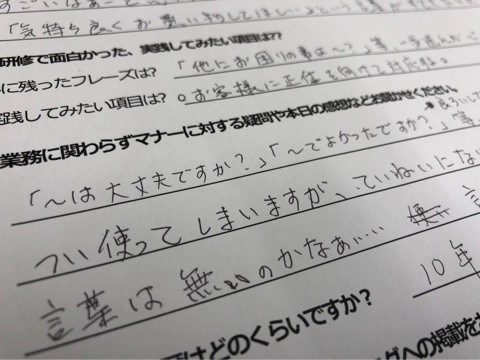 「気持ち良くお買い物してほしいという言葉が
研修で面白かった、実践してみたい項目は??
に残ったフレーズは? 「他にお困りの事は〜?」等、一歩
実践してみたい項目は? 。お客様に正値を向けて対応
業務に関わらずマナーに対する疑問や本日の感想などお聞かせください。
「〜は大丈夫ですか?」「〜でよかったですか?」等
つい使ってしまいますが、ていねいにない
言葉は無いのかなぁ…… 言
10年
けはどのくらいですか?
グへの掲載を